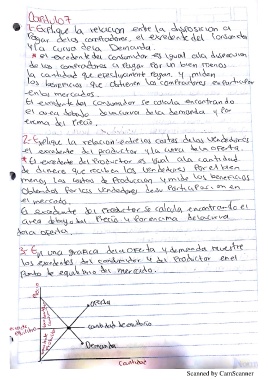 Capitulo 7
1- Explique la relacion entre la disposicion a
Pagar de los compradores, el excedente del Consumidor
y la curva de la Demanda.
* el excedente del consumidor es igual a la disposicion
de los compradores a Pagar por un bien menos
la cantidad que efectivamente Pagan y miden
los beneficios que obtienen los compradores en Participar
en los mercados.
El excedente del consumidor se calcula encontrando
el area debajo de la curva de la demanda y Por
encima del Precio.
2- Explique la relacion entre los costos de los Vendedores
el excedente del productor y la curva de la oferta.
* El excedente del Productor es igual a la cantidad
de dinero que reciben los Vendedores Por el bien
menos los costos de Produccion y mide los beneficios
Obtenidos Por los Vendedores de su Participacion en
el mercado.
El excedente del Productor se calcula encontrando el
area debajo del Precio y Por encima de la curva
de la oferta.
3- En una grafica de la oferta y demanda muestre
los excedentes del consumidor y del Productor en el
Punto de equilibrio del mercado.
Precio
oferta
cantidad de equilibrio
Demanda
Cantidad
Scanned by CamScanner